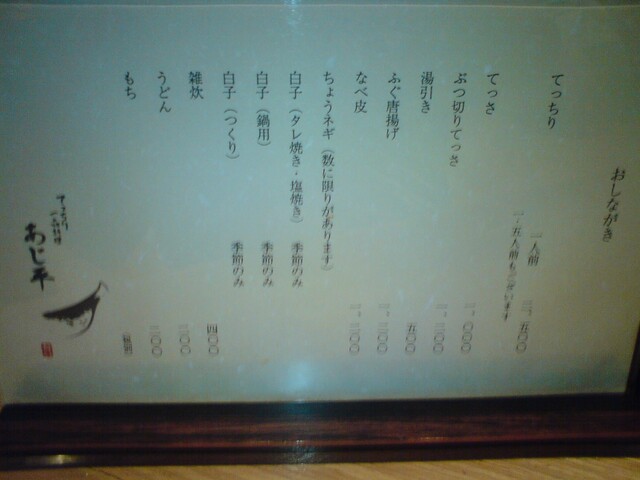 おしながき
てっちり 一人前 三、五〇〇
一・五人前もございます
てっさ 一、〇〇〇
ぶつ切りてっさ 一、二〇〇
湯引き 五〇〇
ふぐ唐揚げ 一、二〇〇
なべ皮 一、二〇〇
ちょうネギ（数に限りがあります）
白子（タレ焼き・塩焼き） 季節のみ
白子（鍋用） 季節のみ
白子（つくり） 季節のみ
雑炊 四〇〇
うどん 二〇〇
もち 二〇〇
あじ平